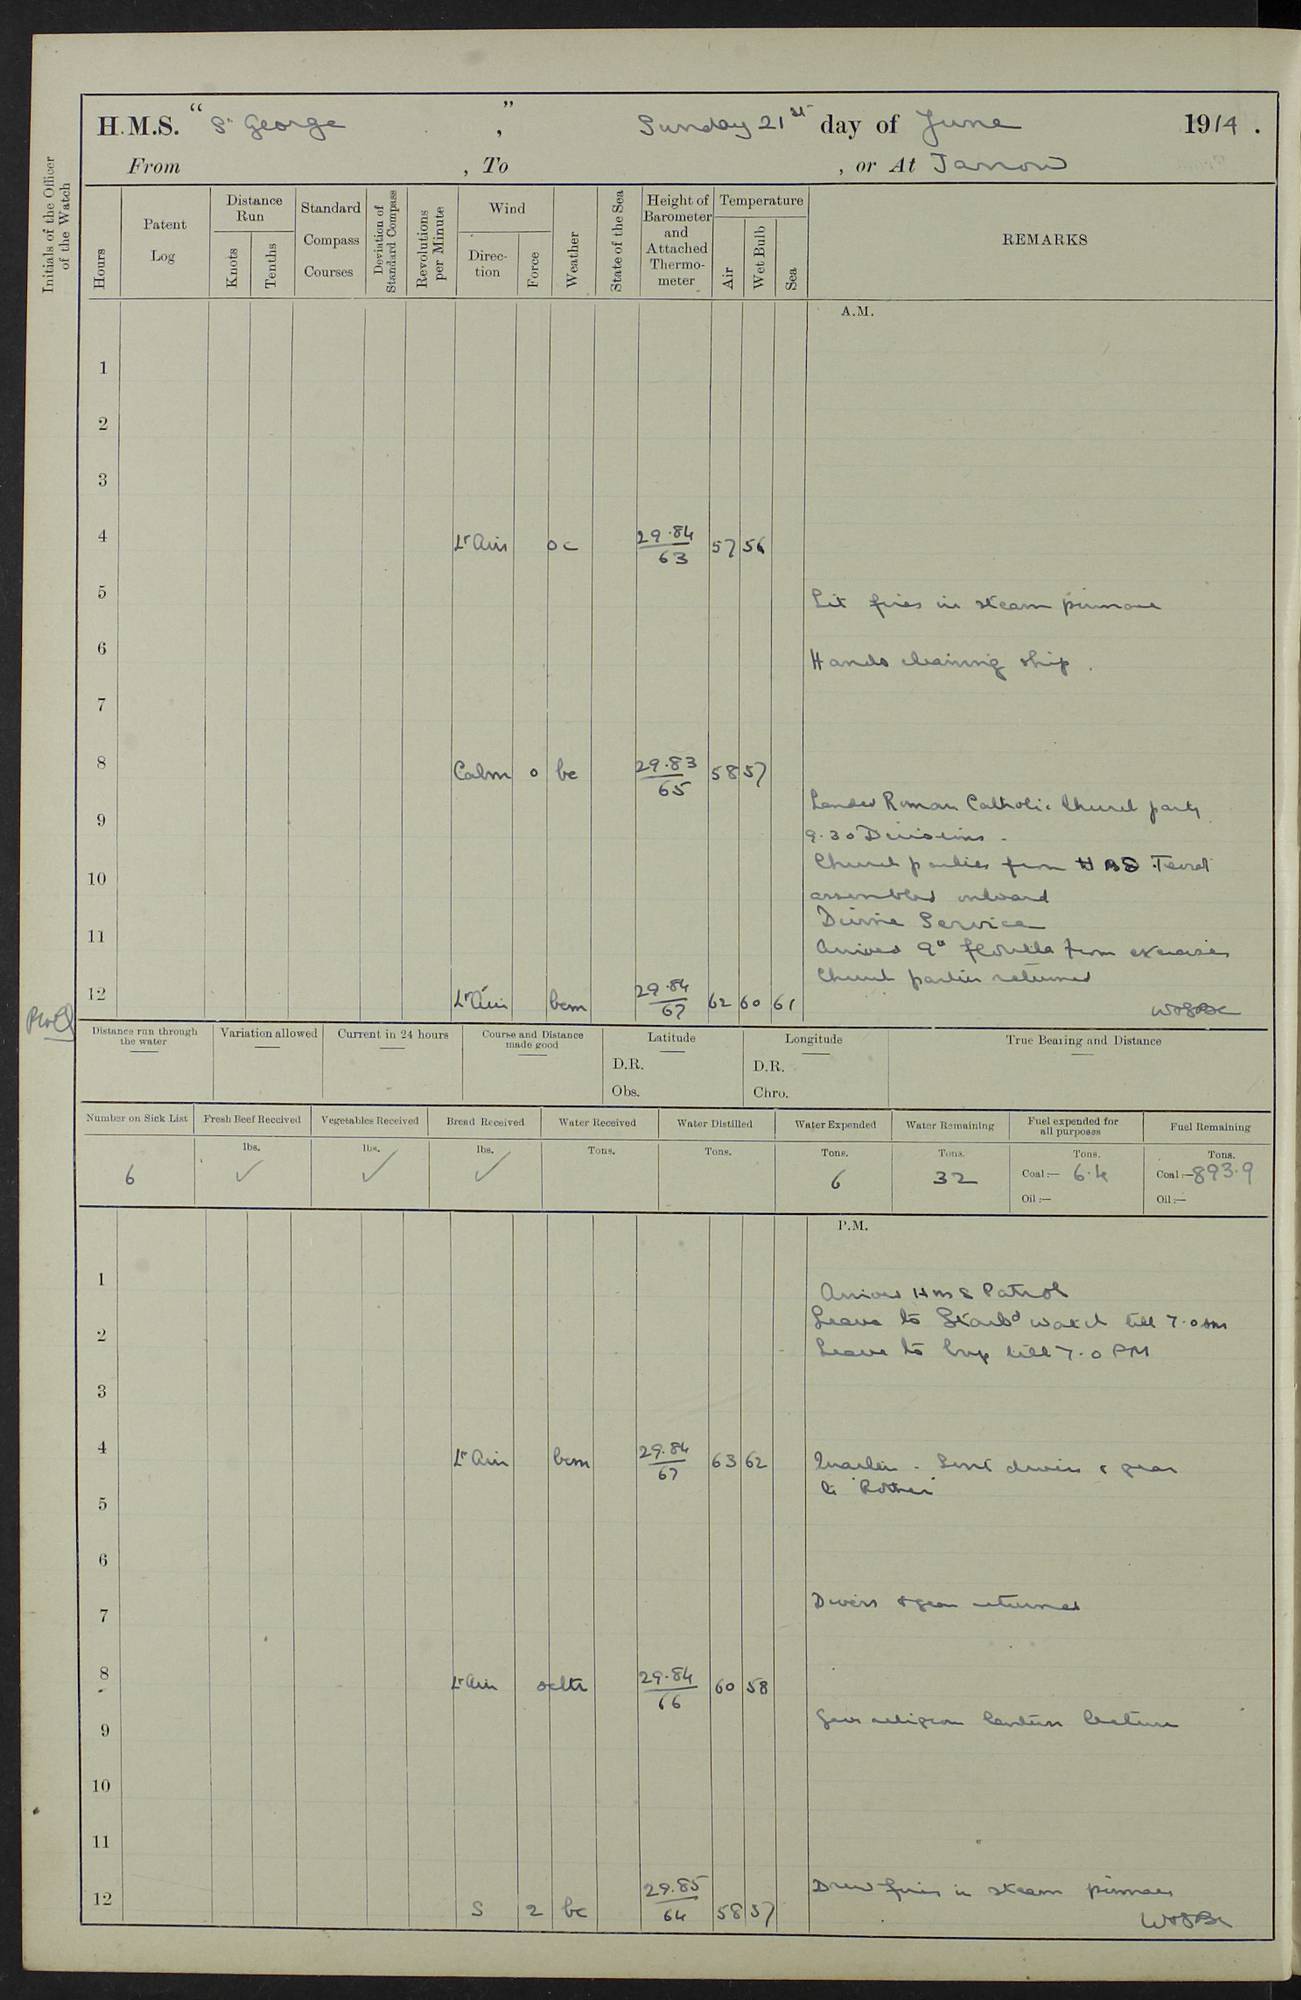 H.M.S. "St George", Sunday 21st day of June 1914.
From , To , or At Jarrow
Initials of the Officer of the Watch
Hours
Patent Log
Distance Run
Knots
Tenths
Standard Compass Courses
Deviation of Standard Compass
Revolutions per Minute
Wind
Direction
Force
Weather
State of the Sea
Height of Barometer and Attached Thermometer
Temperature
Air
Wet Bulb
Sea
REMARKS
A.M.
1
2
3
4 Lt Airs oc 29.84 63 57 56
5 Lit fires in steam pinnace
6 Hands cleaning ship.
7
8 Calm 0 bc 29.83 65 58 57
Landed Roman Catholic Church party
9
9.30 Divisions.
Church parties from
10
assembled onboard
Divine Service
11
Arrived 9th Flotilla from exercises
Church parties returned
12 Lt Air bcm 29.84 67 62 60 61
Distance run through the water
Variation allowed
Current in 24 hours
Course and Distance made good
Latitude
D.R.
Obs.
Longitude
D.R.
Chro.
True Bearing and Distance
Number on Sick List
Fresh Beef Received
Vegetables Received
Bread Received
Water Received
Water Distilled
Water Expended
Water Remaining
Fuel expended for all purposes
Fuel Remaining
6
lbs. ✓
lbs. ✓
lbs. ✓
Tons.
Tons.
Tons. 6
Tons. 32
Tons. Coal:— 6.4
Oil:—
Tons. Coal:— 893.9
Oil:—
P.M.
1
Arrived HMS Patrol
Leave to Starbd watch till 7.0 AM
2
Leave to boys till 7.0 PM
3
4 Lt Air bcm 29.84 67 63 62 Quarters. Sent divers & gear
to 'Rother'
5
6
7 Divers & gear returned
8 Lt Air 29.84 66 60 58
Gave religious lantern lecture
9
10
11
12 S 2 bc 29.85 64 58 57 Drew fires in steam pinnace